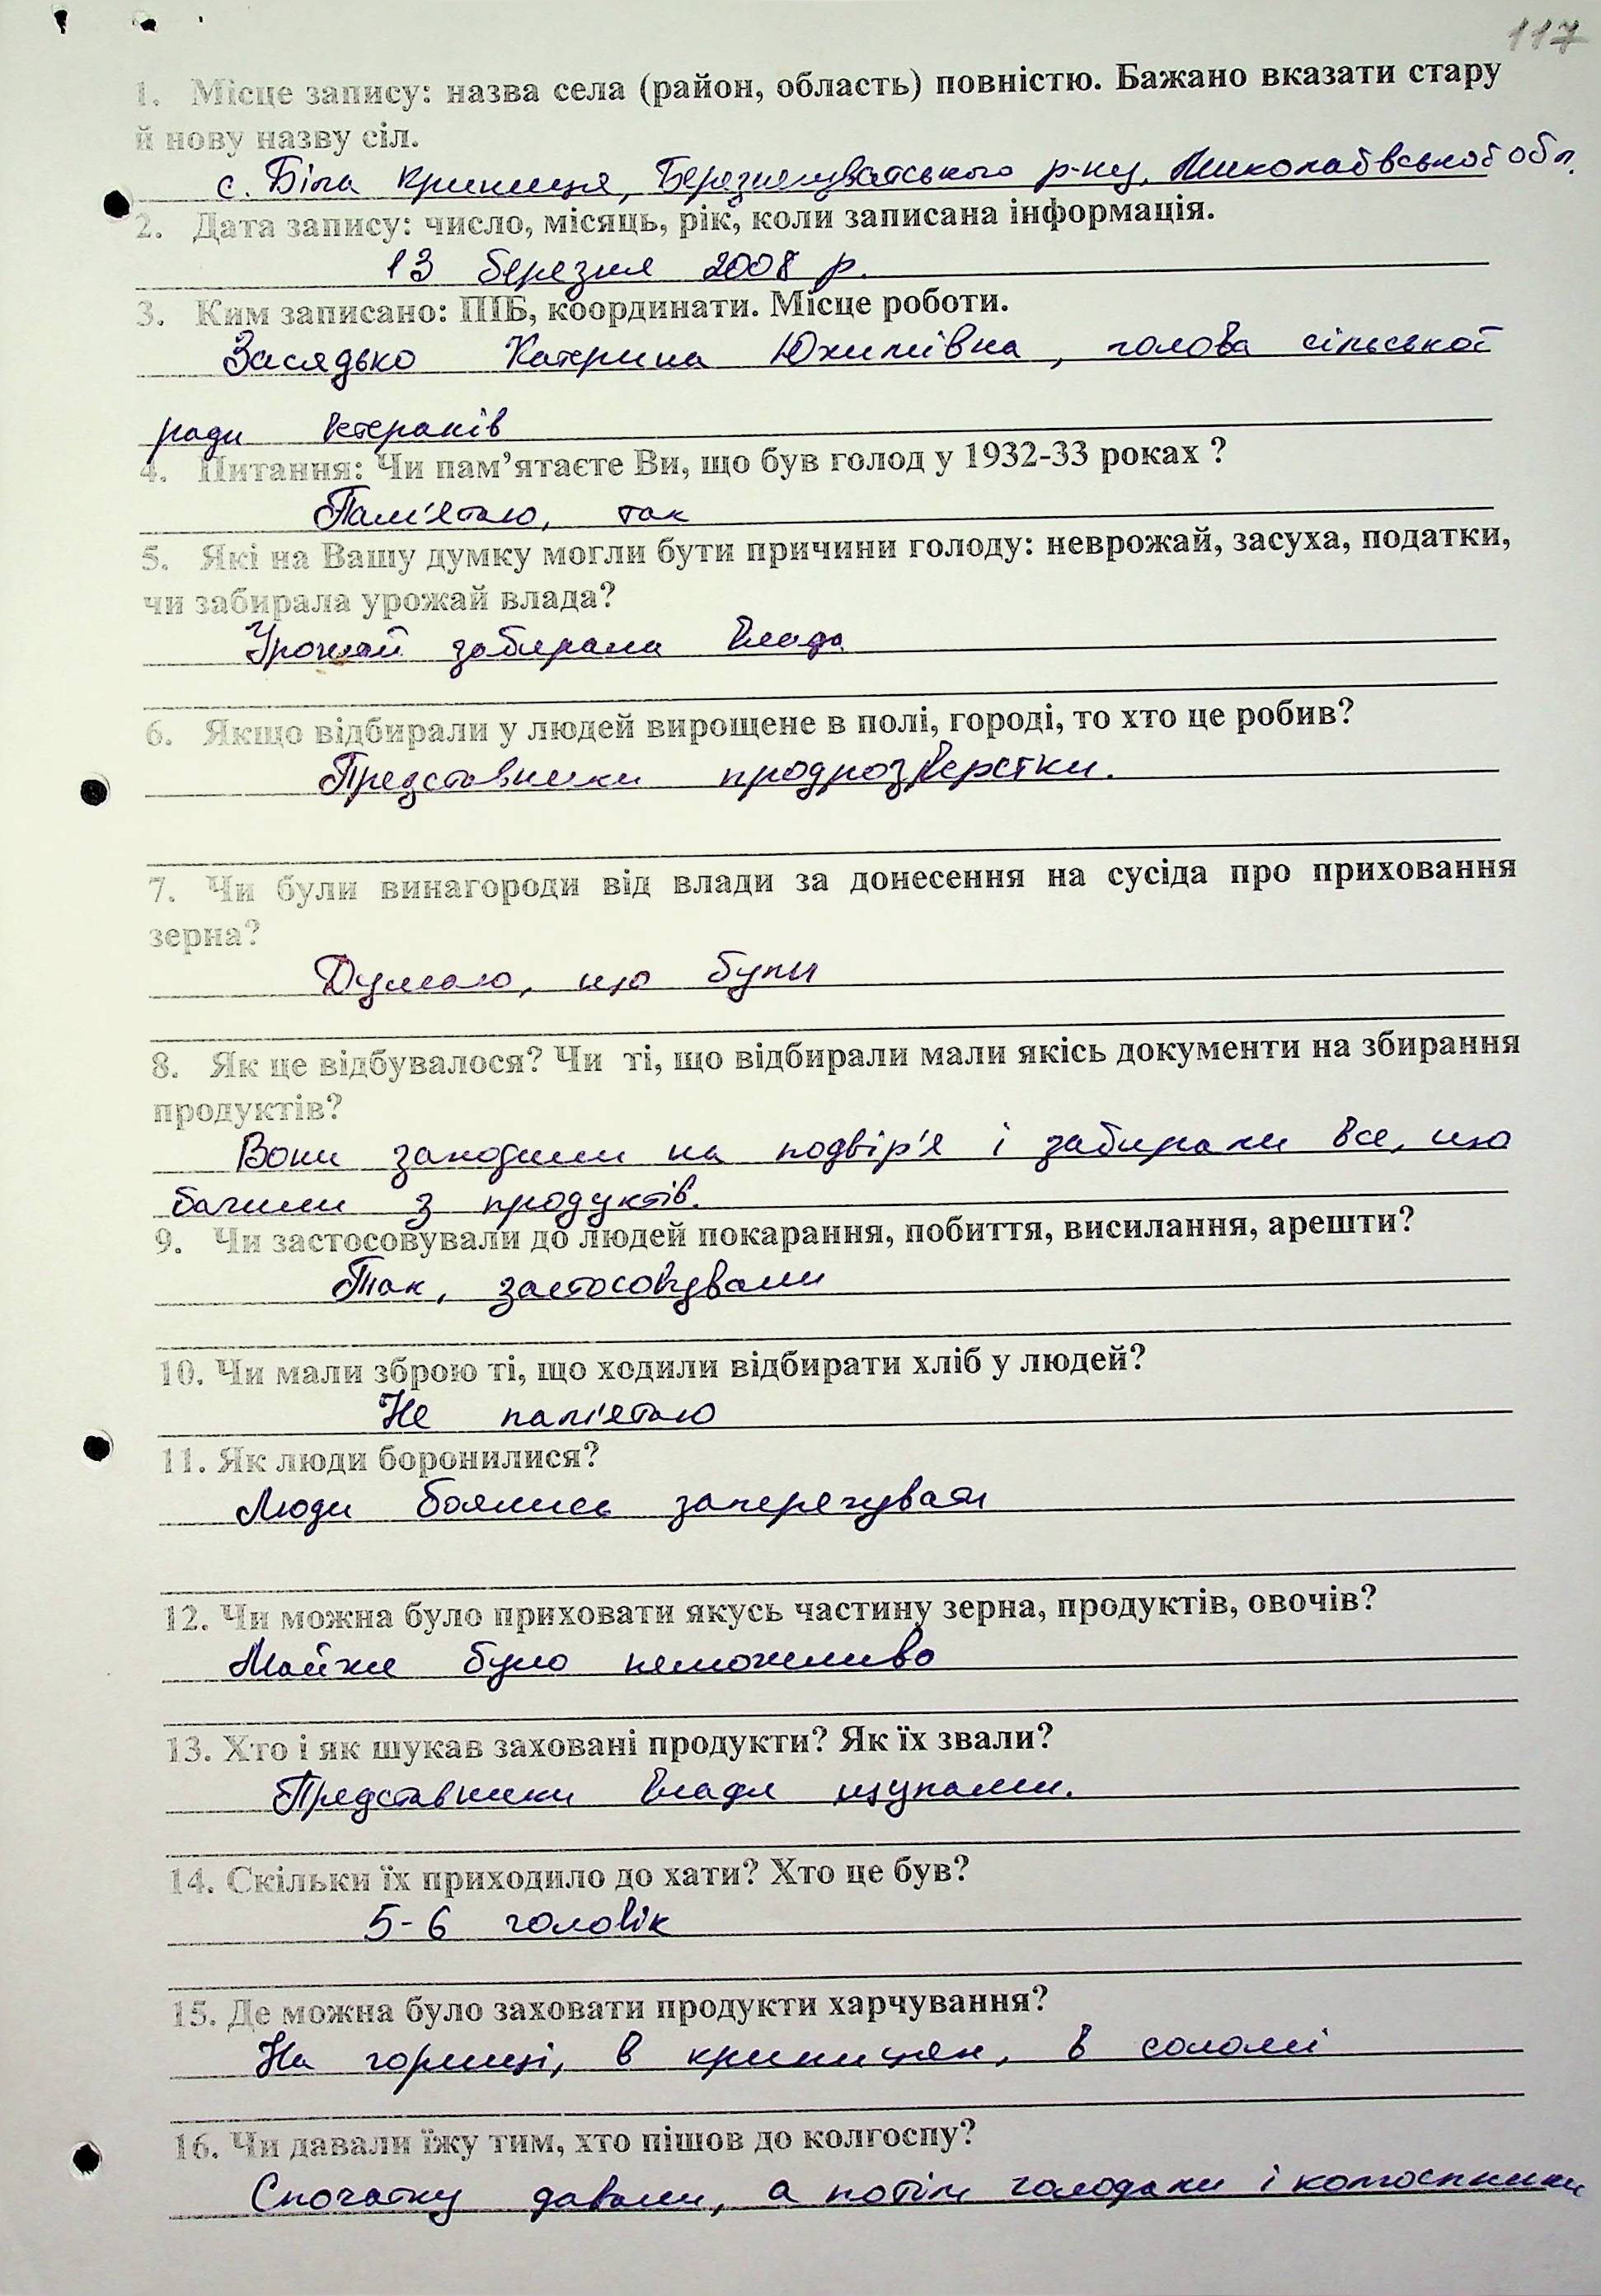 117
1. Місце запису: назва села (район, область) повністю. Бажано вказати стару
й нову назву сіл.
с. Біла Криниця, Березнегуватського р-ну, Миколаївської обл.
2. Дата запису: число, місяць, рік, коли записана інформація.
13 березня 2008 р.
3. Ким записано: ПІБ, координати. Місце роботи.
Засядько Катерина Юхимівна, голова сільської
ради ветеранів
4. Питання: Чи пам’ятаєте Ви, що був голод у 1932-33 роках ?
Пам'ятаю, так
5. Які на Вашу думку могли бути причини голоду: неврожай, засуха, податки,
чи забирала урожай влада?
Урожай забирала влада
6. Якщо відбирали у людей вирощене в полі, городі, то хто це робив?
Представники продрозверстки.
7. Чи були винагороди від влади за донесення на сусіда про приховання
зерна?
Думаю, що були
8. Як це відбувалося? Чи ті, що відбирали мали якісь документи на збирання
продуктів?
Вони заходили на подвір'я і забирали все, що
бачили з продуктів.
9. Чи застосовували до людей покарання, побиття, висилання, арешти?
Так, застосовували
10. Чи мали зброю ті, що ходили відбирати хліб у людей?
Не пам'ятаю
11. Як люди боронилися?
Люди боялись заперечувати
12. Чи можна було приховати якусь частину зерна, продуктів, овочів?
Майже було неможливо
13. Хто і як шукав заховані продукти? Як їх звали?
Представники влади щупами.
14. Скільки їх приходило до хати? Хто це був?
5-6 чоловік
15. Де можна було заховати продукти харчування?
На горищі, в криницях, в соломі
16. Чи давали їжу тим, хто пішов до колгоспу?
Спочатку давали, а потім голодали і колгоспники